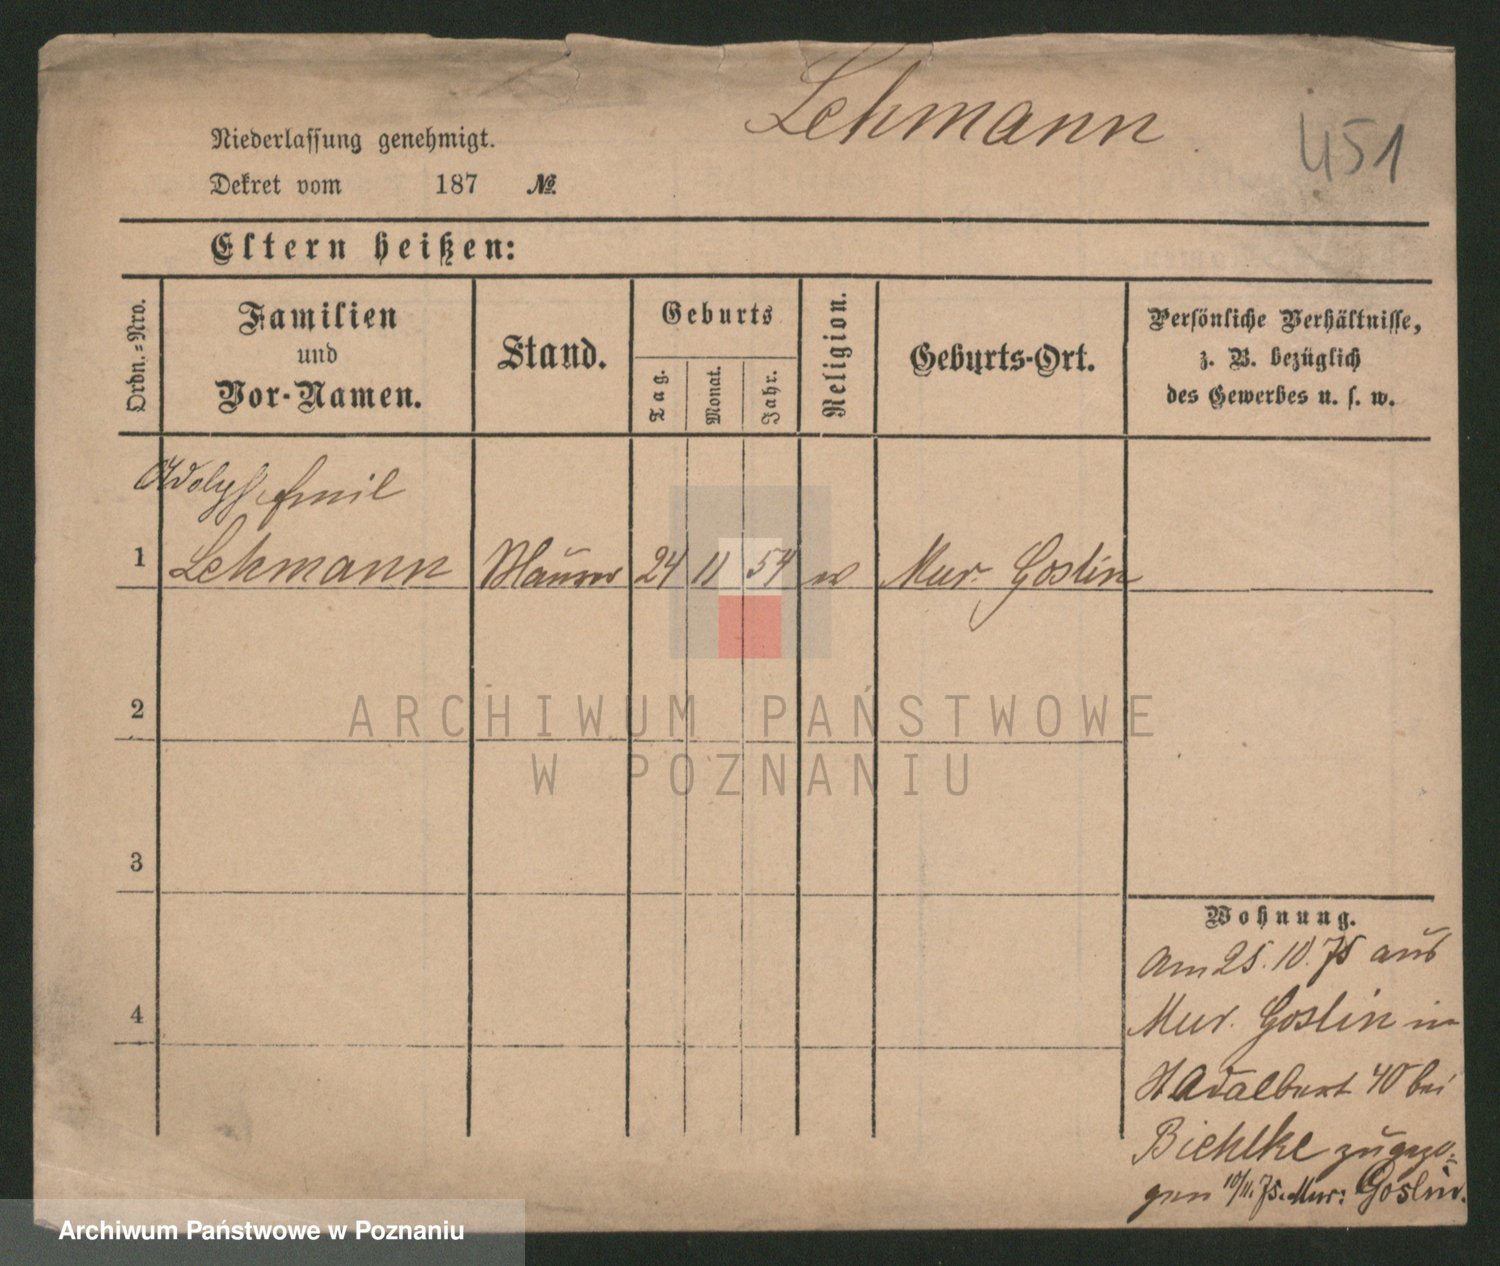 Lehmann
451
Niederlassung genehmigt.
Dekret vom 187 №
Eltern heißen:
Ordn.=Nro.
Familien
und
Vor-Namen.
Stand.
Geburts
Tag.
Monat.
Jahr.
Religion.
Geburts-Ort.
Persönliche Verhältnisse,
z. B. bezüglich
des Gewerbes u. s. w.
Adolph Emil
1 Lehmann Maurer 24 11 54 Mur. Goslin
2
3
4
Wohnung.
Am 25. 10. 75 aus
Mur. Goslin in
Adalbert 40 bei
Biehlke zugezo-
gen 10/11. 75. Mur: Goslin.
ARCHIWUM PAŃSTWOWE
W POZNANIU
Archiwum Państwowe w Poznaniu